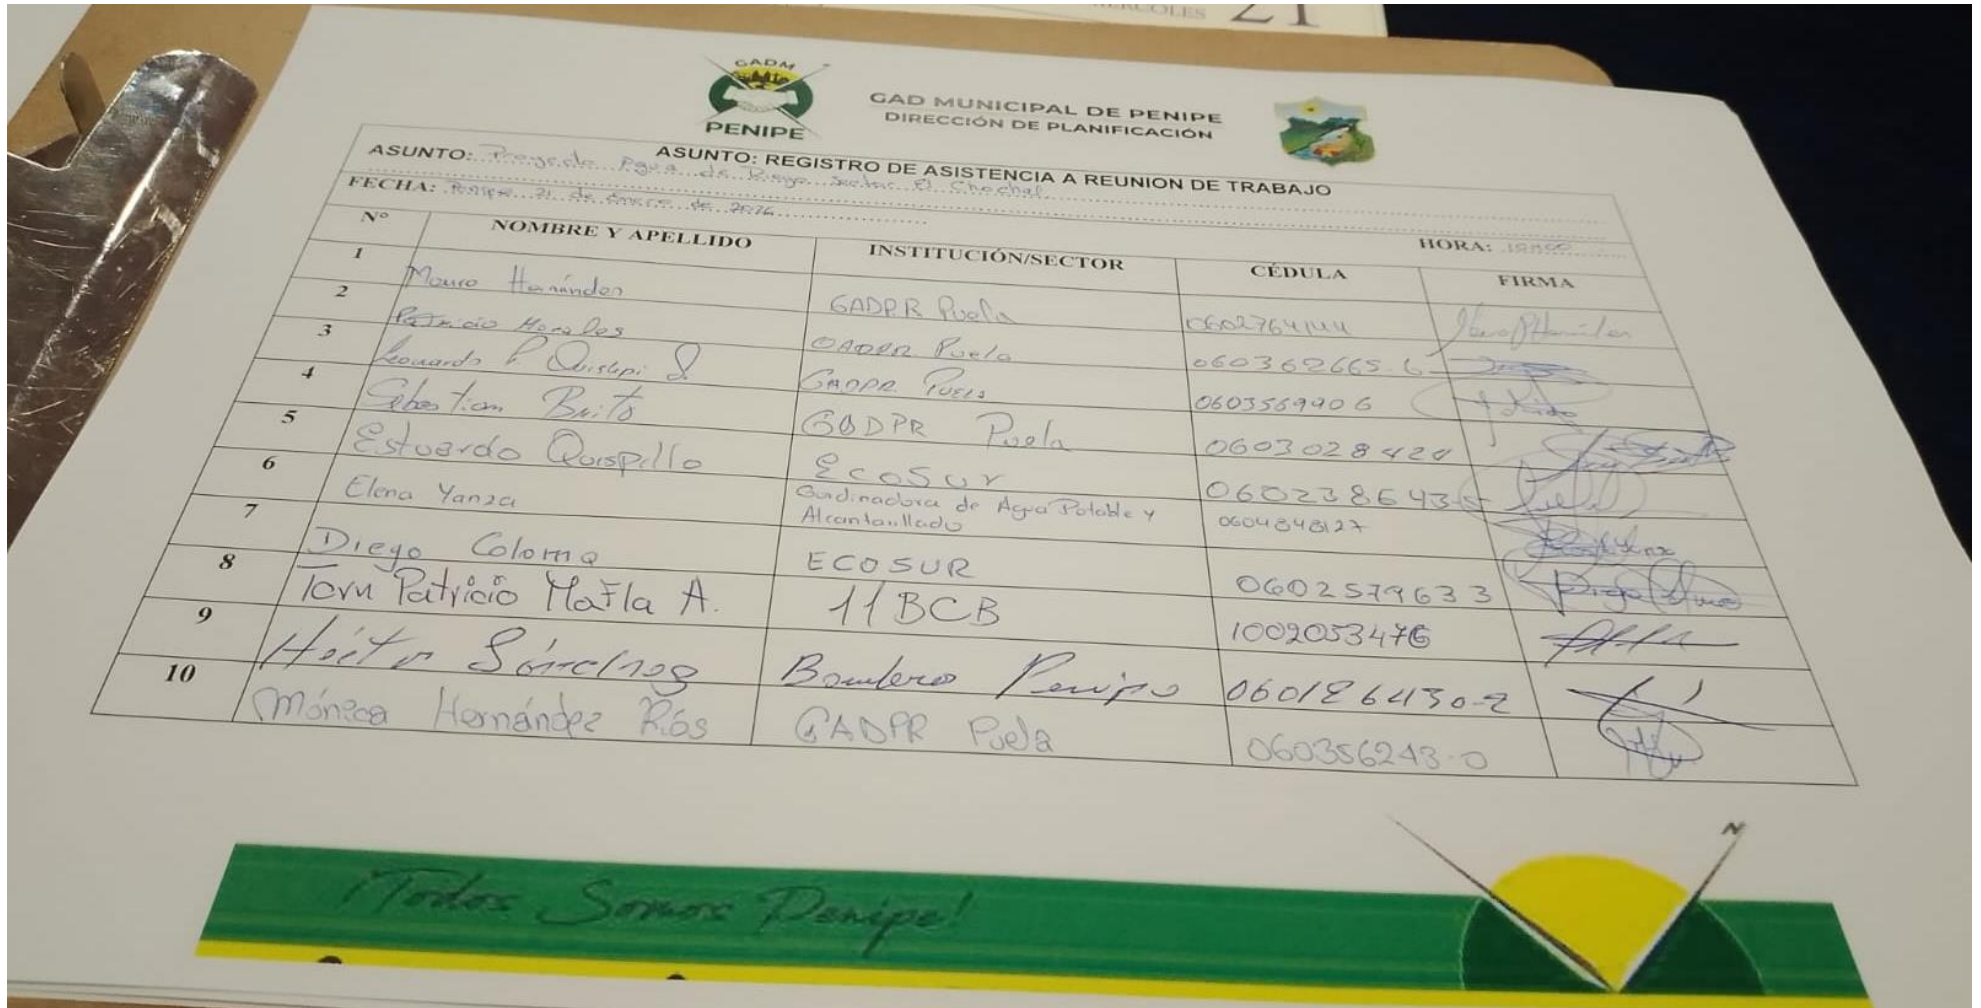 MIÉRCOLES 21
GADM
PENIPE
GAD MUNICIPAL DE PENIPE
DIRECCIÓN DE PLANIFICACIÓN
ASUNTO: REGISTRO DE ASISTENCIA A REUNION DE TRABAJO
ASUNTO: Proyecto Agua de Riego Sector El Chochal
FECHA: Penipe 21 de Enero de 2026
HORA:
Nº NOMBRE Y APELLIDO INSTITUCIÓN/SECTOR CÉDULA FIRMA
1 Mauro Hernández GADPR Puela 0602764144
2 Patricio Morales GADPR Puela 060362665-6
3 Leonardo GADPR Puela 0603569906
4 Sebastian Brito GADPR Puela 0603028424
5 Estuardo Quispillo Ecosur 060238643-5
6 Elena Yanza Cordinadora de Agua Potable y
Alcantarillado 0604848127
7 Diego Coloma ECOSUR 0602579633
8 Patricio Mafla A. 11 BCB 1002053476
9 Héctor Sánchez Bombero Penipe 060126430-2
10 Mónica Hernández Ríos GADPR Puela 060356243-0
¡Todos Somos Penipe!
N